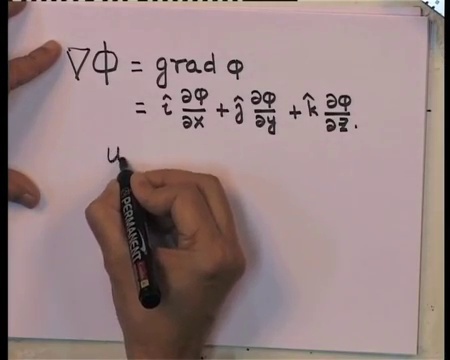 ∇Φ = grad φ
= î ∂φ/∂x + ĵ ∂φ/∂y + k̂ ∂φ/∂z.
u
PERMANENT